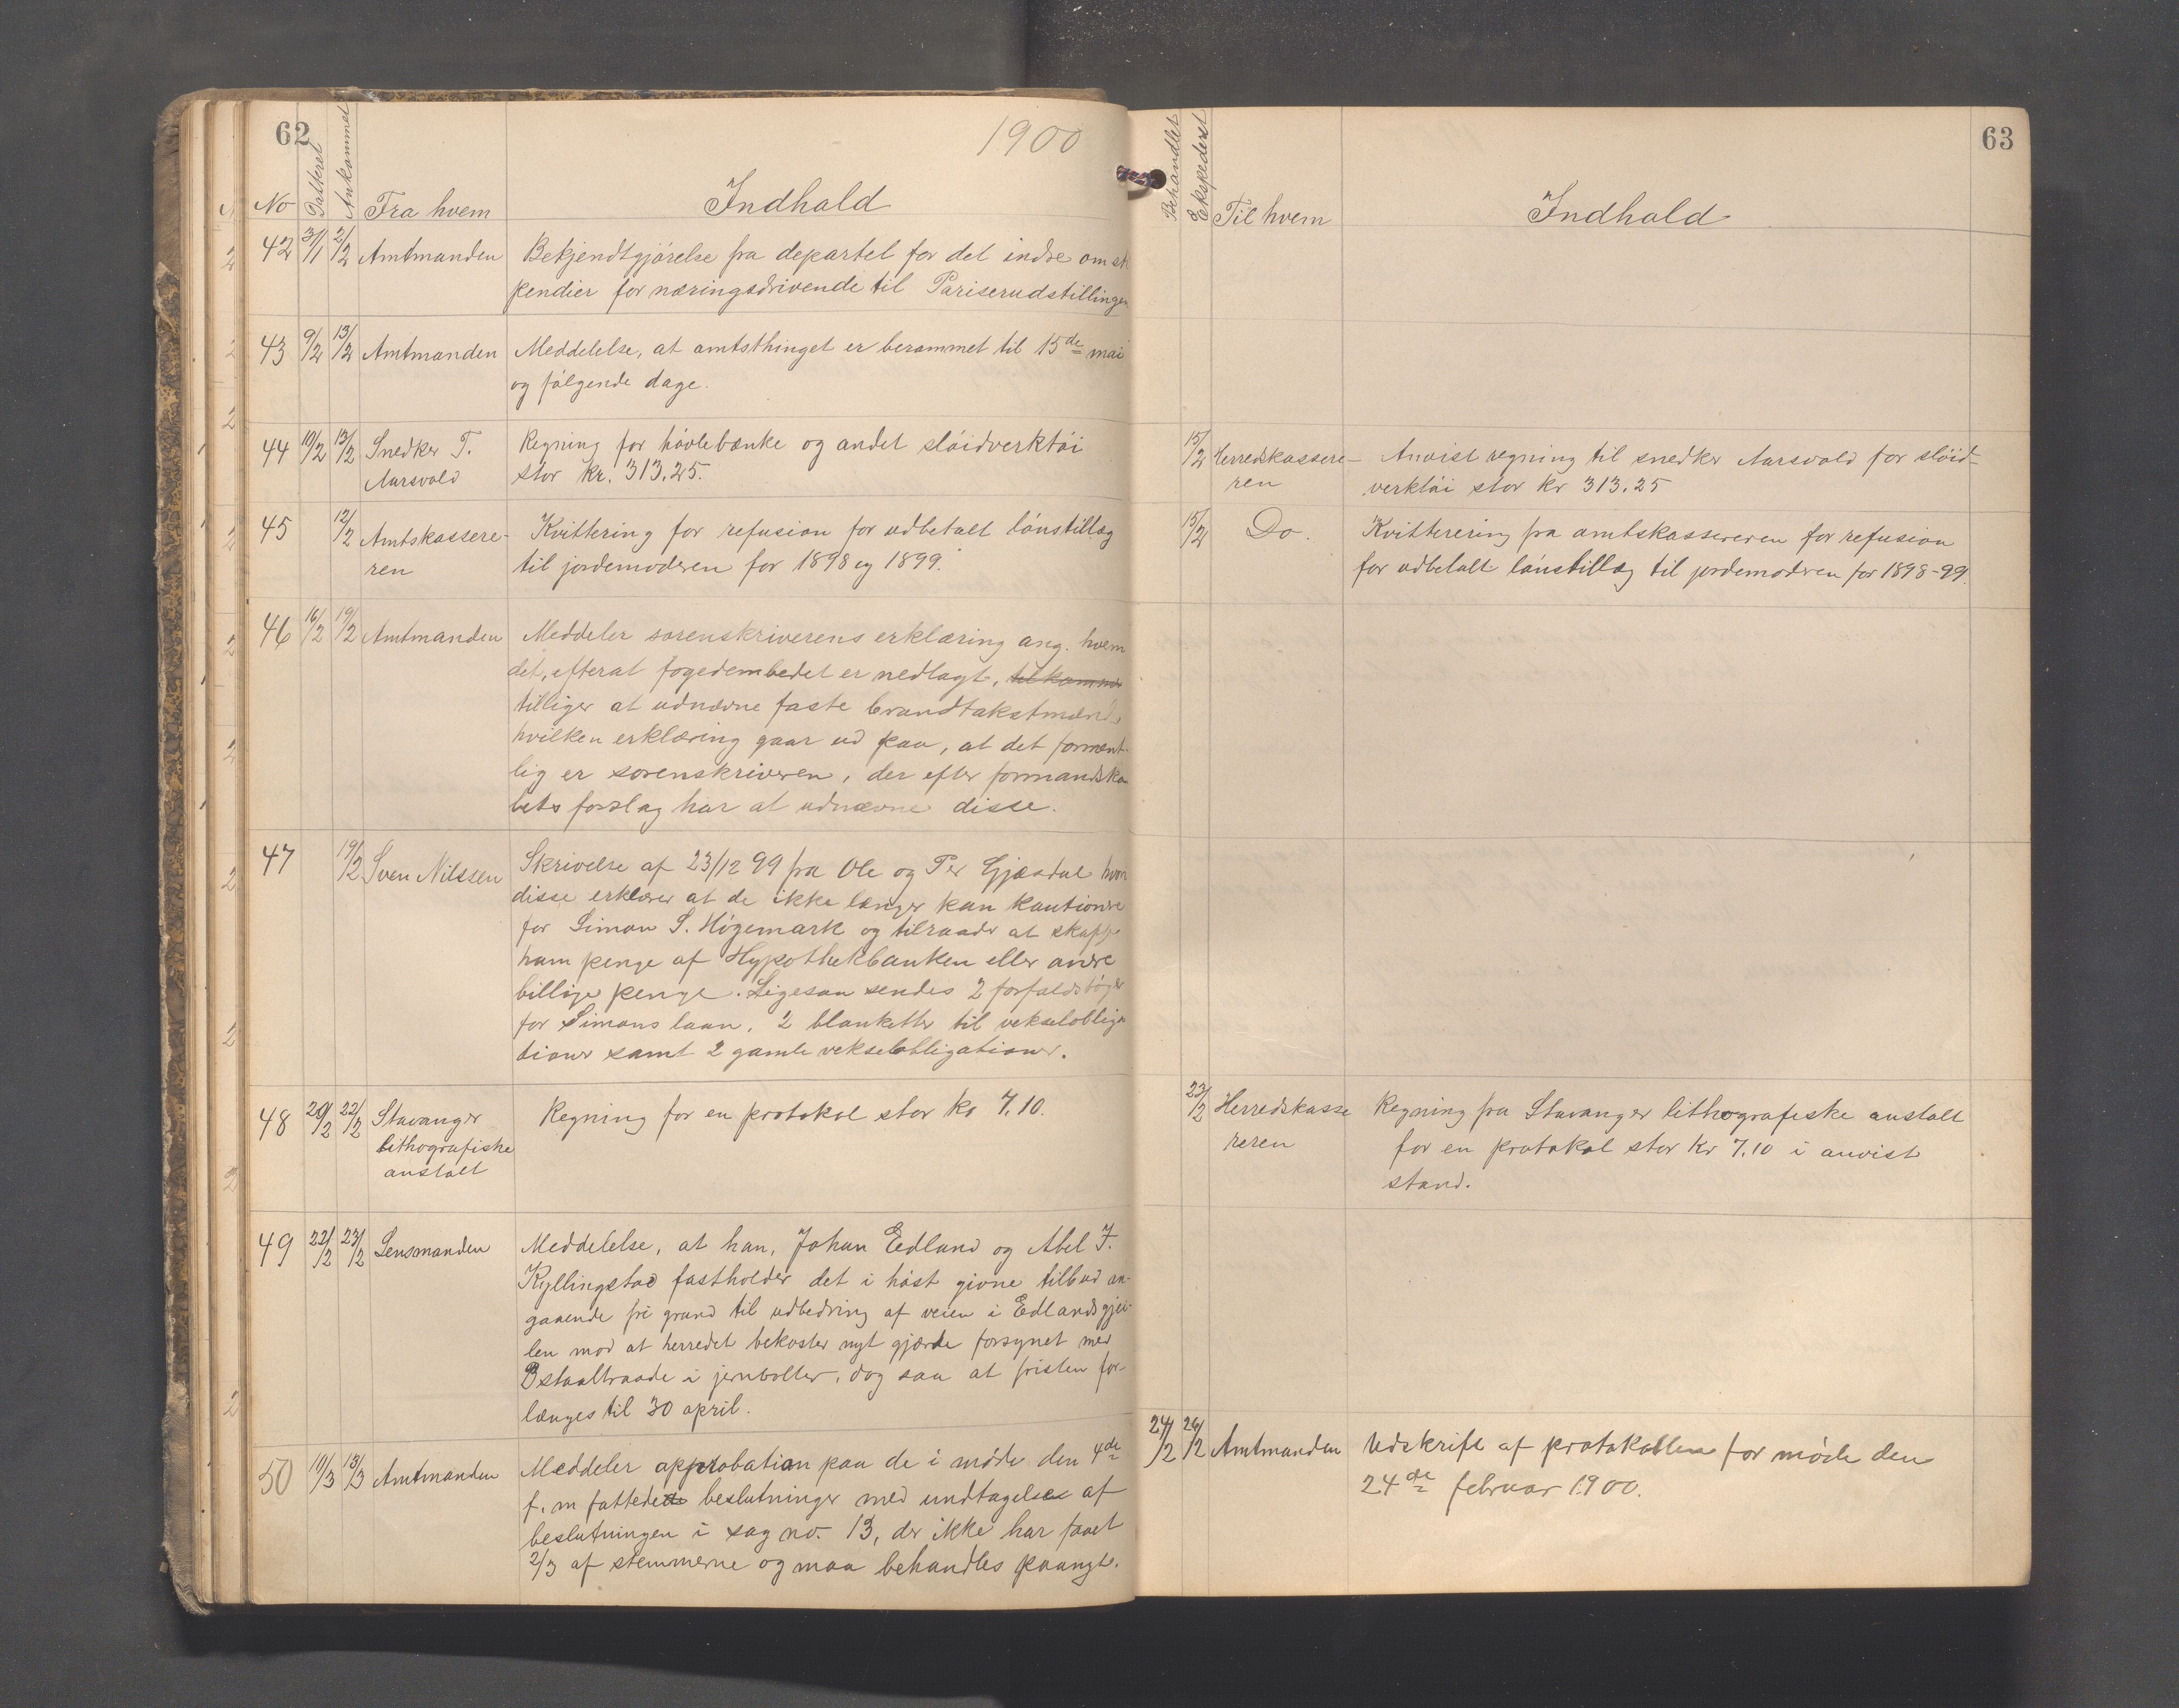 62
1900
No Datteret Ankommet Fra hvem Indhald
42 31/1 2/2 Amtmanden Bekjendtgjörelse fra departet for det indre om sti
pendier for næringsdrivende til Pariserudstillingen
43 9/2 13/2 Amtmanden Meddelelse, at amtsthinget er berammet til 15de mai
og følgende dage.
44 10/2 13/2 Snedker T. Regning for hövlebænke og andet slöidverktöi
Aarsvold stor kr. 313.25.
45 12/2 Amtskassere- Kvittering for refusion for udbetalt lönstillæg
ren til jordemoderen for 1898 og 1899.
46 16/2 19/2 Amtmanden Meddeler sorenskriverens erklæring ang. hvem
det, efterat fogedembedet er nedlagt, tilkommer
tilliger at udnævne faste brandtakstmænd,
hvilken erklæring gaar ud paa, at det forment-
lig er sorenskriveren, der efter formandska
bets forslag har at udnævne disse.
47 19/2 Sven Nilssen Skrivelse af 23/12 99 fra Ole og Per Gjesdal hvor
disse erklærer at de ikke længer kan kautionere
for Simon S. Högemark og tilraader at skaffe
ham penge af Hypothekbanken eller andre
billige penge. Ligesaa sendes 2 forfaldsbøger
for Simons laan, 2 blanketter til vekselobliga
tioner samt 2 gamle vekselobligationer.
48 20/2 22/2 Stavanger Regning for en protokol stor kr 7.10.
lithografiske
anstalt
49 22/2 23/2 Lensmanden Meddelelse, at han, Johan Edland og Abel F.
Kyllingstad fastholder det i höst givne tilbud an-
gaaende fri grund til udbedring af veien i Edlandsgjei-
len mod at herredet bekoster nyt gjærde forsynet med
3 staaltraade i jernbolter, dog saa at fristen for-
længes til 30 april.
50 10/3 13/3 Amtmanden Meddeler approbation paa de i møde den 4de
f. m fattede beslutninger med undtagelse af
beslutningen i sag no. 13, der ikke har faaet
2/3 af stemmerne og maa behandles paanyt.
63
Behandlet Ekspederet Til hvem Indhald
15/2 Herredskassere- Anvist regning til snedker Aarsvold for slöid-
ren verktöi stor kr 313.25
15/2 Do. Kvitterering fra amtskassereren for refusion
for udbetalt lönstillæg til jordemoderen for 1898-99.
23/2 Herredskasse Regning fra Stavanger lithografiske anstalt
reren for en protokol stor kr 7.10 i anvist
stand.
24/2 26/2 Amtmanden Udskrift af protokollen for møde den
24de februar 1900.